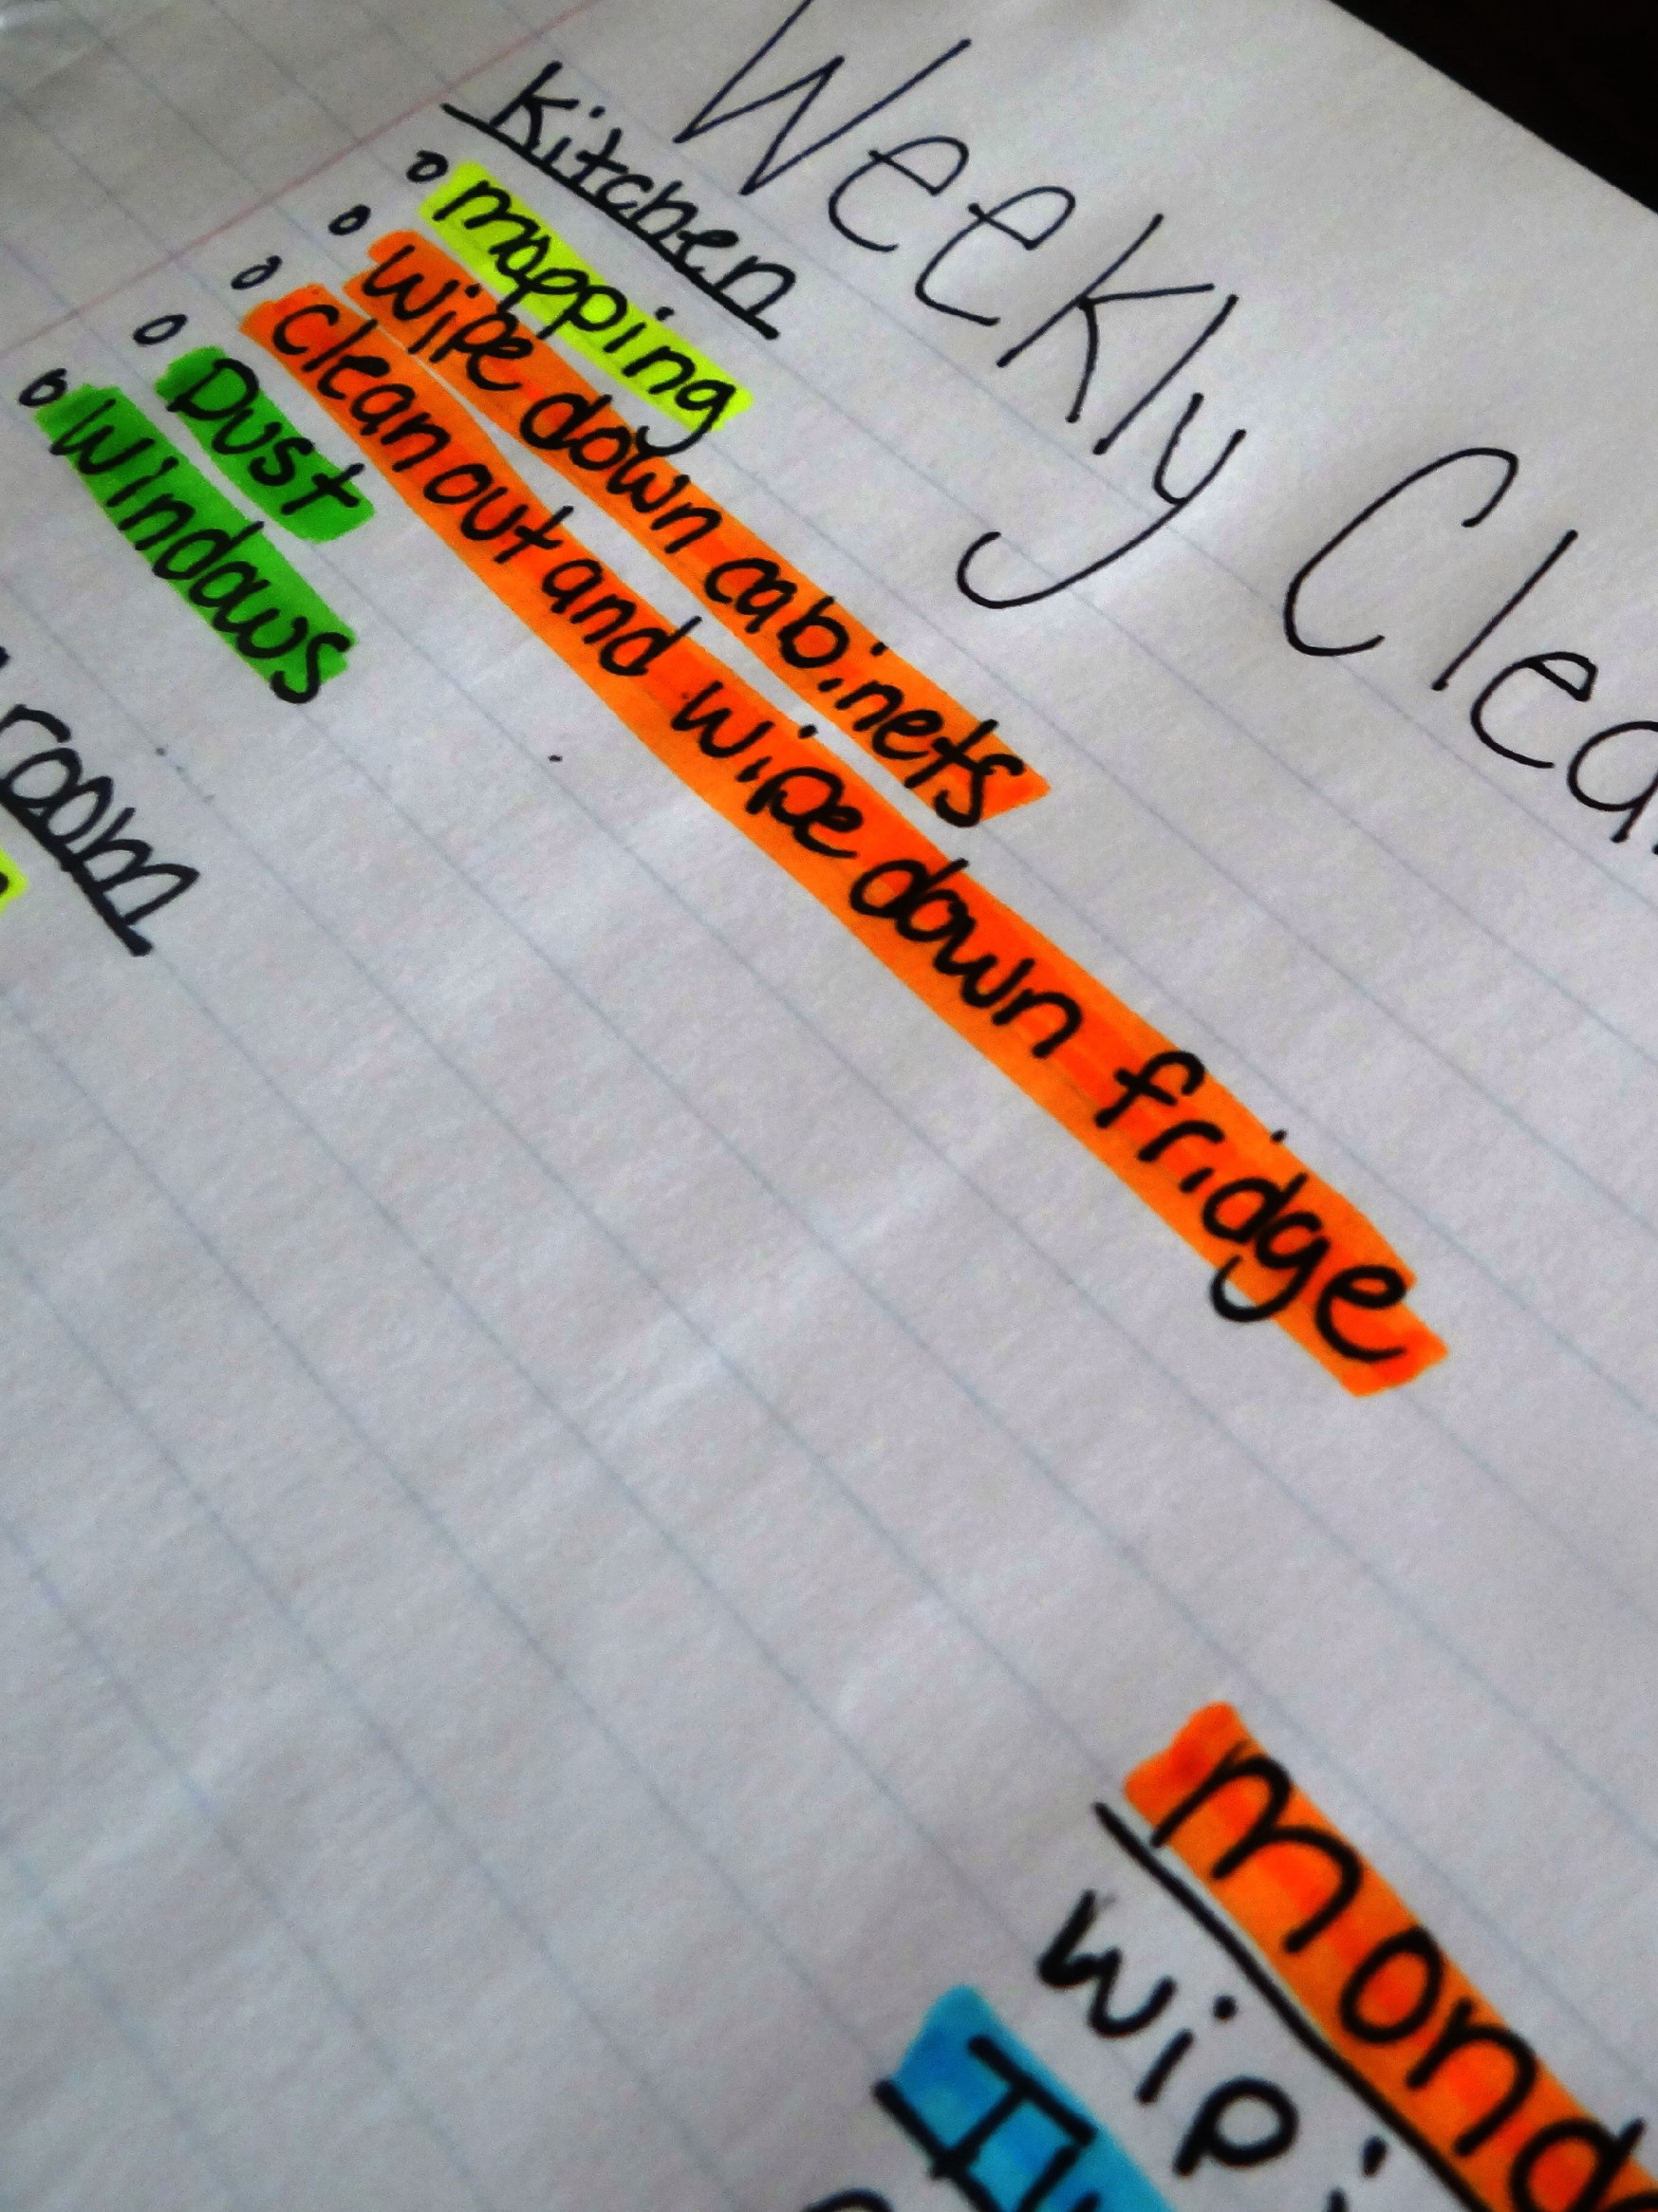 Weekly Clea
Kitchen
mopping
wipe down cabinets
clean out and wipe down fridge
Dust
Windows
room
mond
wipi
Tu